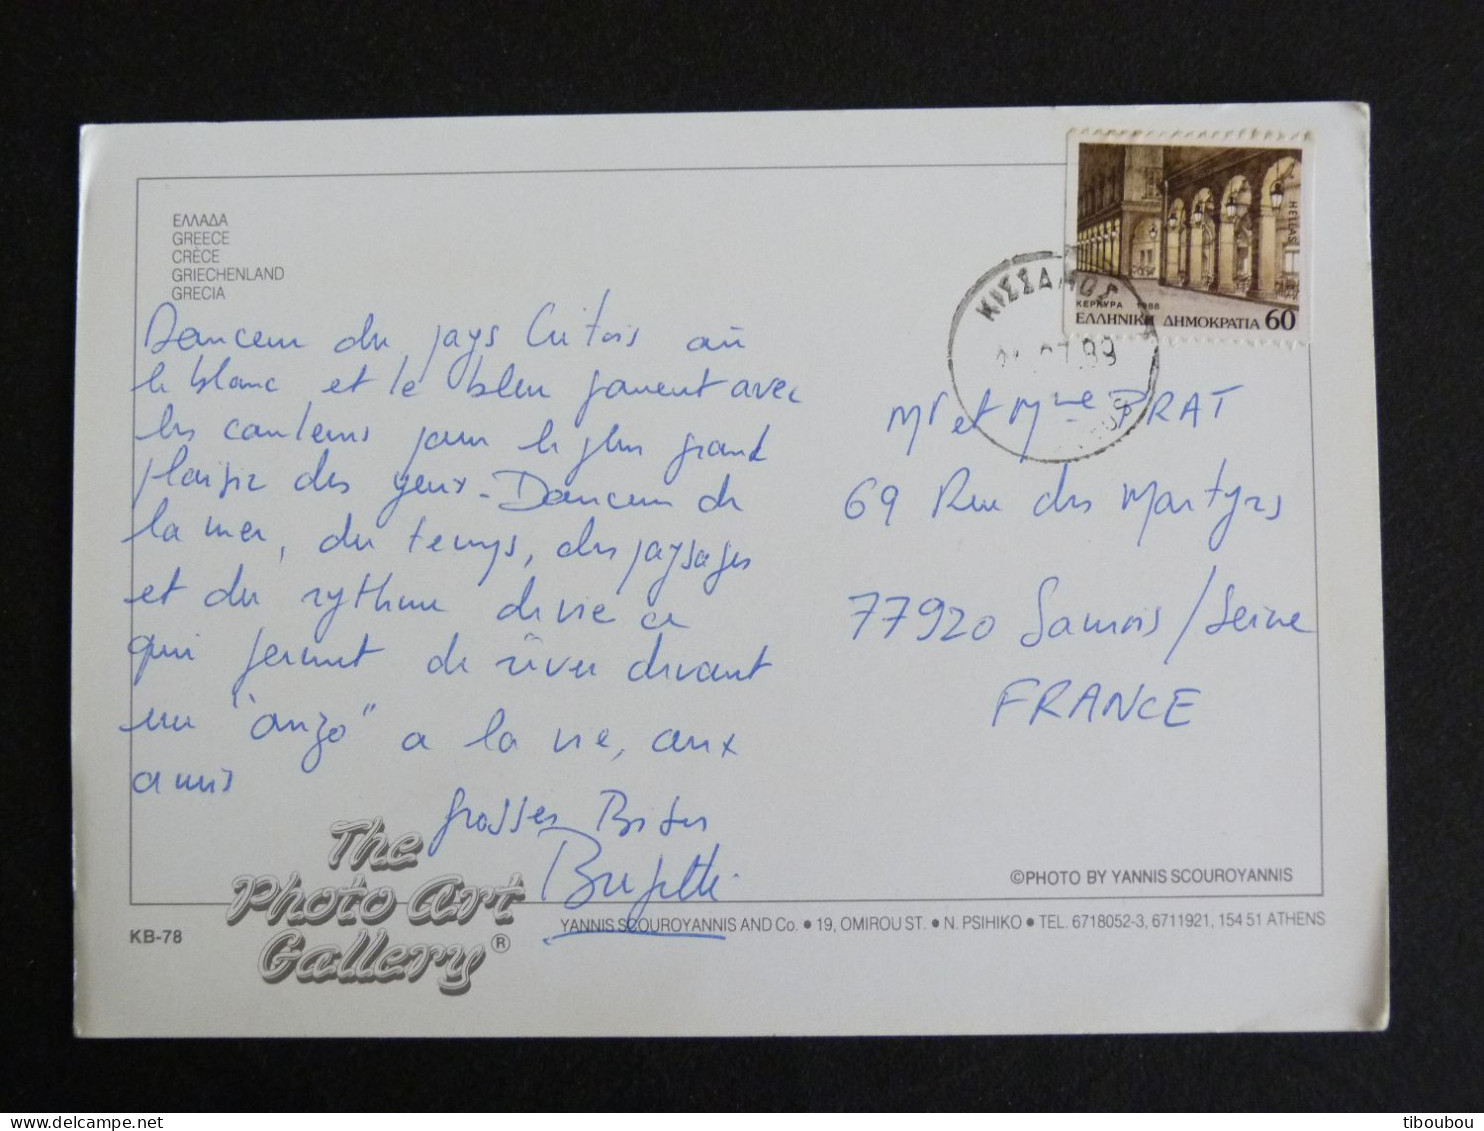 ΕΛΛΑΔΑ
GREECE
CRÈCE
GRIECHENLAND
GRECIA
Douceur du pays Crétois où
le blanc et le bleu jouent avec
les couleurs pour le plus grand
plaisir des yeux - Douceur de
la mer, du temps, des paysages
et du rythme de vie ce
qui permet de rêver devant
un "ouzo" a la vie, aux
amis
grosses Bises
KB-78
The
Photo Art
Gallery ®
HELLAS
ΚΕΡΚΥΡΑ 1988
ΕΛΛΗΝΙΚΗ ΔΗΜΟΚΡΑΤΙΑ 60
ΚΙΣΣΑΜΟΣ
07.89
Mr et Mme PRAT
69 Rue des Martyrs
77920 Samois / Seine
FRANCE
©PHOTO BY YANNIS SCOUROYANNIS
YANNIS SCOUROYANNIS AND Co. • 19, OMIROU ST. • N. PSIHIKO • TEL. 6718052-3, 6711921, 154 51 ATHENS
tiboubou